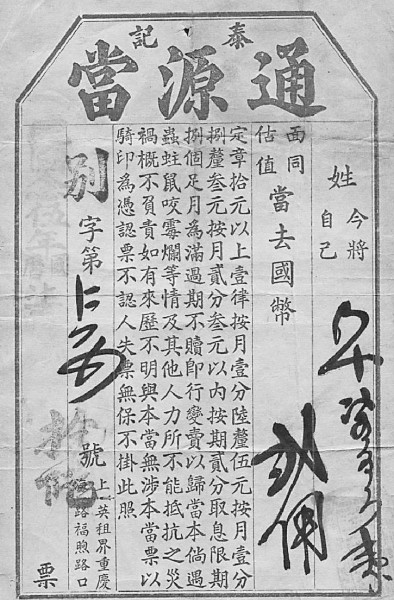 泰記
通源當
姓
今將
自己
面同
估值
當去國幣
定章拾元以上壹律按月壹分陸釐伍元按月壹分
捌釐叁元按月貳分叁元以內按期貳分取息限期
捌個足月為滿過期不贖即行變賣以歸當本倘遇
蟲蛀鼠咬霉爛等情及其他人力所不能抵抗之災
禍概不負責如有來歷不明與本當無涉本當票以
騎印為憑認票不認人失票無保不掛此照
別字第
號
上英租界重慶
路福煦路口
票